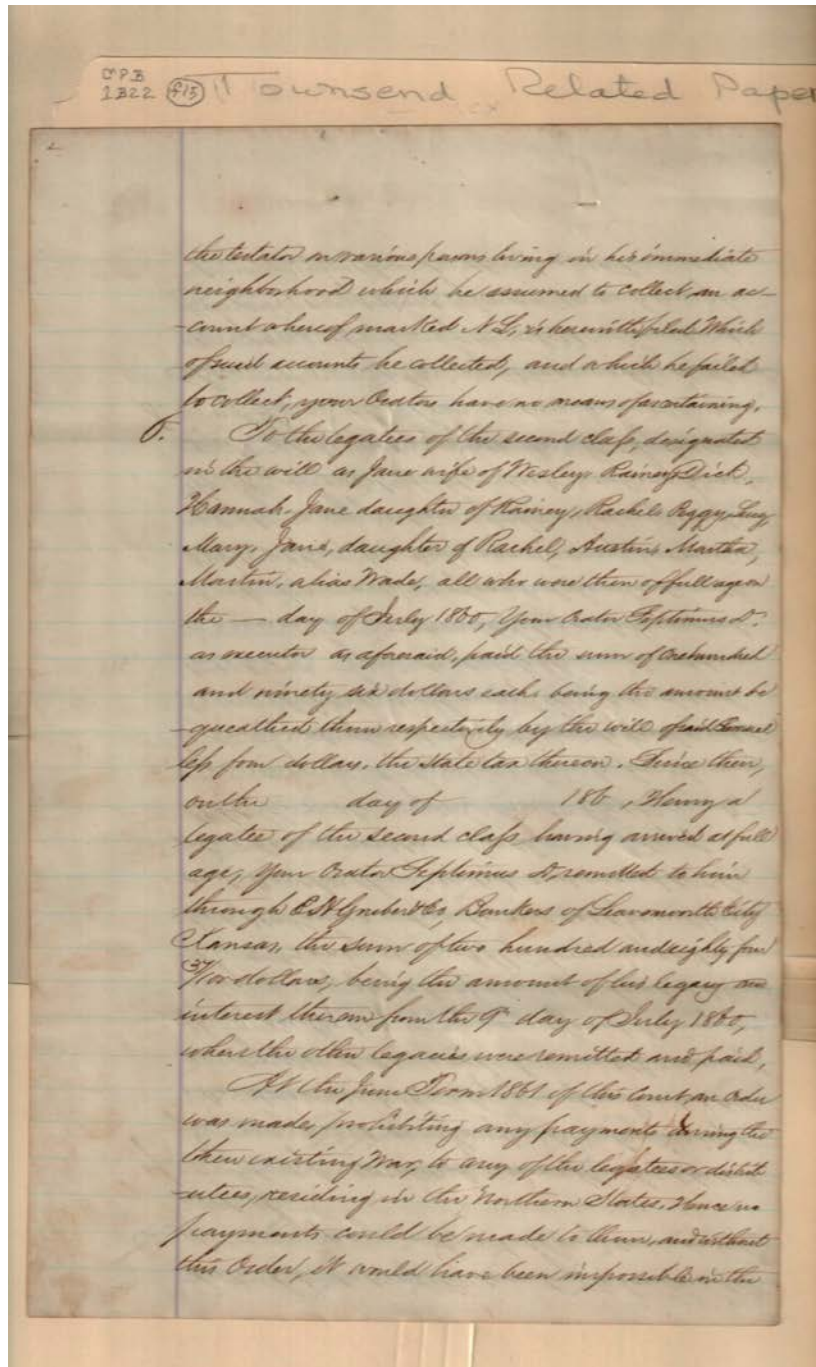 CPB
1B22 f15 Townsend Related Paper
the testator on various persons living in his immediate
neighborhood which he assumed to collect, an ac-
-count whereof marked N L, is herewith filed. Which
of said accounts he collected, and which he failed
to collect, your Orators have no means of ascertaining.
To the legatees of the second class, designated
in the will as Jane wife of Wesley, Rainey, Dick,
Hannah, Jane daughter of Rainey, Rachel, Peggy,
Mary, Jane, daughter of Rachel, Austin, Martha,
Martin, alias Wade, all who were then of full age on
the — day of July 1860, Your Orator Septimus D.
as executor as aforesaid, paid the sum of one hundred
and ninety six dollars each, being the amount be
-queathed them respectively by the will of said Samuel
less four dollars, the State tax thereon. Since then,
on the day of 186 , Henry a
legatee of the second class having arrived at full
age, your Orator Septimus D, remitted to him
through & Co, Bankers of Leavenworth City
Kansas, the sum of two hundred and eighty four
37/100 dollars, being the amount of his legacy and
interest thereon from the 9th day of July 1860,
when the other legacies were remitted and paid.
At the June Term 1861 of this Court an order
was made, prohibiting any payments during the
then existing War, to any of the legatees or distrib
-utees, residing in the Northern States. Hence no
payments could be made to them, and without
this Order, it would have been impossible in the